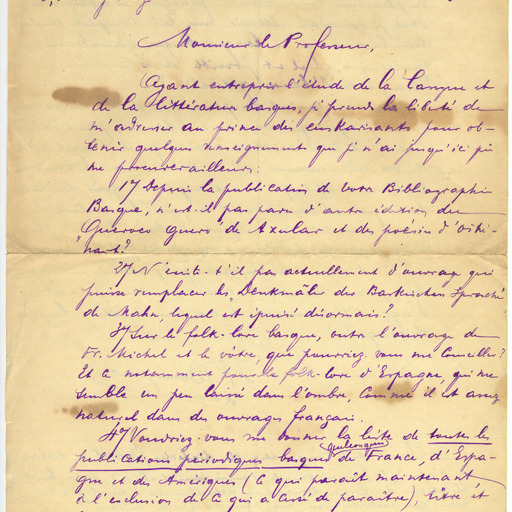 Monsieur le Professeur,
Ayant entrepris l'étude de la langue et
de la littérature basques, je prends la liberté de
m'adresser au prince des euskarisants pour ob-
tenir quelques renseignements que je n'ai jusqu'ici pu
me procurer ailleurs.
1º/ Depuis la publication de votre Bibliographie
Basque, n'est-il pas paru d'autre édition du
"Gueroco guero" de Axular et des poésies d'Oihé-
nart?
2º/ N'existe-t'il pas actuellement d'ouvrage qui
puisse remplacer les "Denkmäler der Baskischen Sprache"
de Mahn, lequel est épuisé désormais?
3º/ Sur le folk-lore basque, outre l'ouvrage de
Fr. Michel et le vôtre, que pourriez vous me conseiller?
Et ce notamment pour le folk-lore d'Espagne, qui me
semble un peu laissé dans l'ombre, comme il est assez
naturel dans des ouvrages français.
4º/ Voudriez-vous me donner la liste de toutes les
publications périodiques basques de France, d'Espa-
gne et des Amériques (ce qui paraît maintenant
à l'exclusion de ce qui a cessé de paraître), titre et